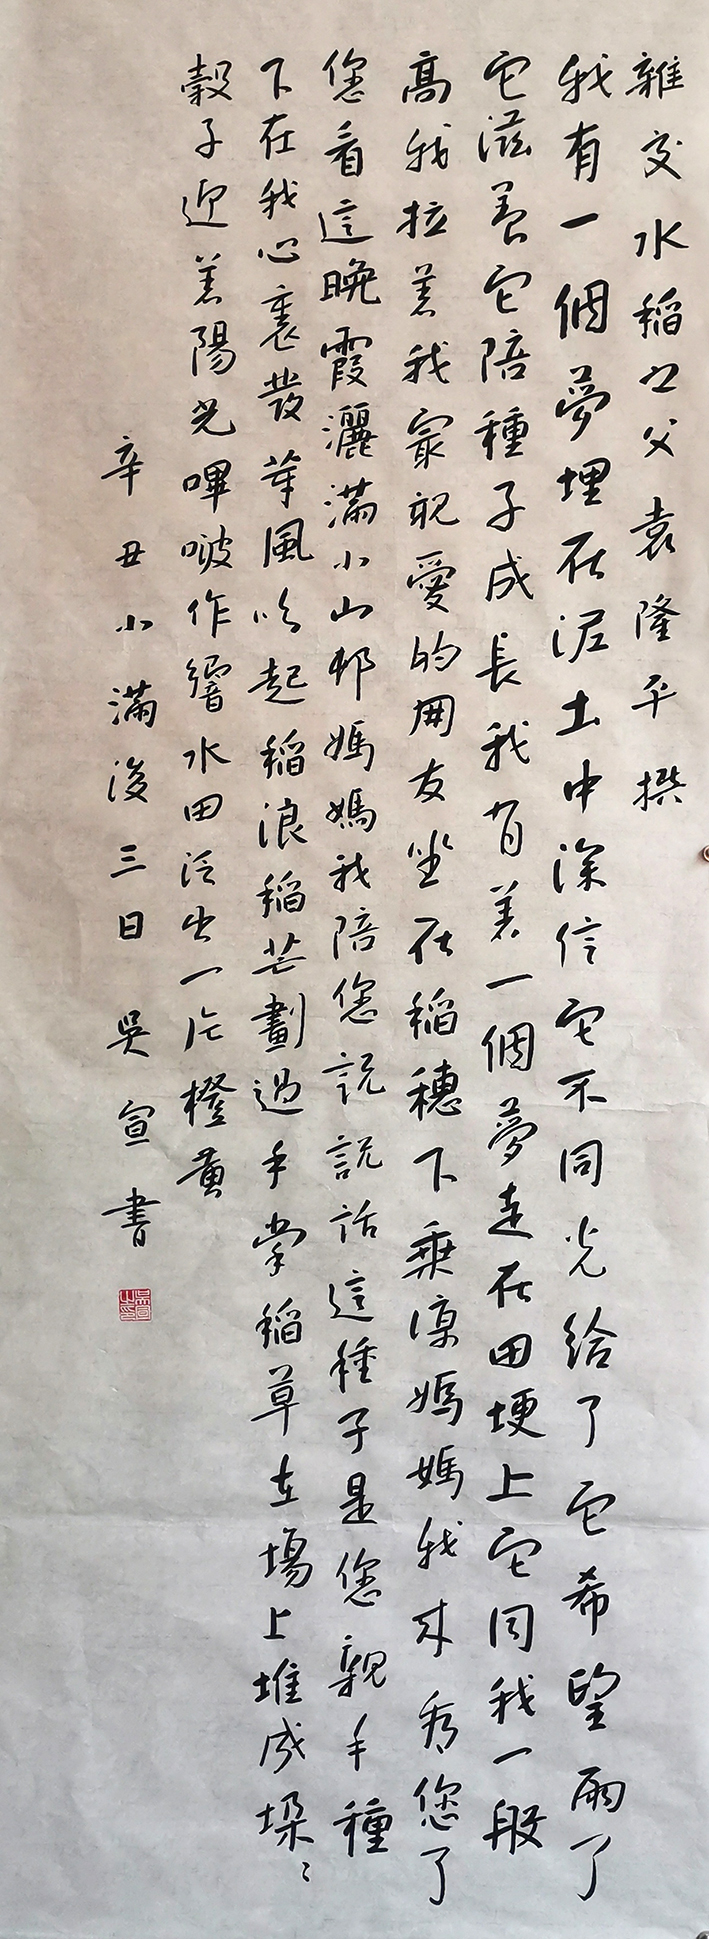 雜交水稻之父袁隆平撰
我有一個夢埋在泥土中深信它不同光給了它希望雨了
它滋養它陪種子成長我有着一個夢走在田埂上它同我一般
高我拉着我最親愛的朋友坐在稻穗下乘涼媽媽我來看您了
您看這晚霞灑滿小山邨媽媽我陪您説説話這種子是您親手種
下在我心裏發芽風吹起稻浪稻芒劃過手掌稻草在場上堆成垛〻
穀子迎着陽光嗶啵作響水田泛出一片橙黄
辛丑小滿後三日 吳宣書
吳宣之印